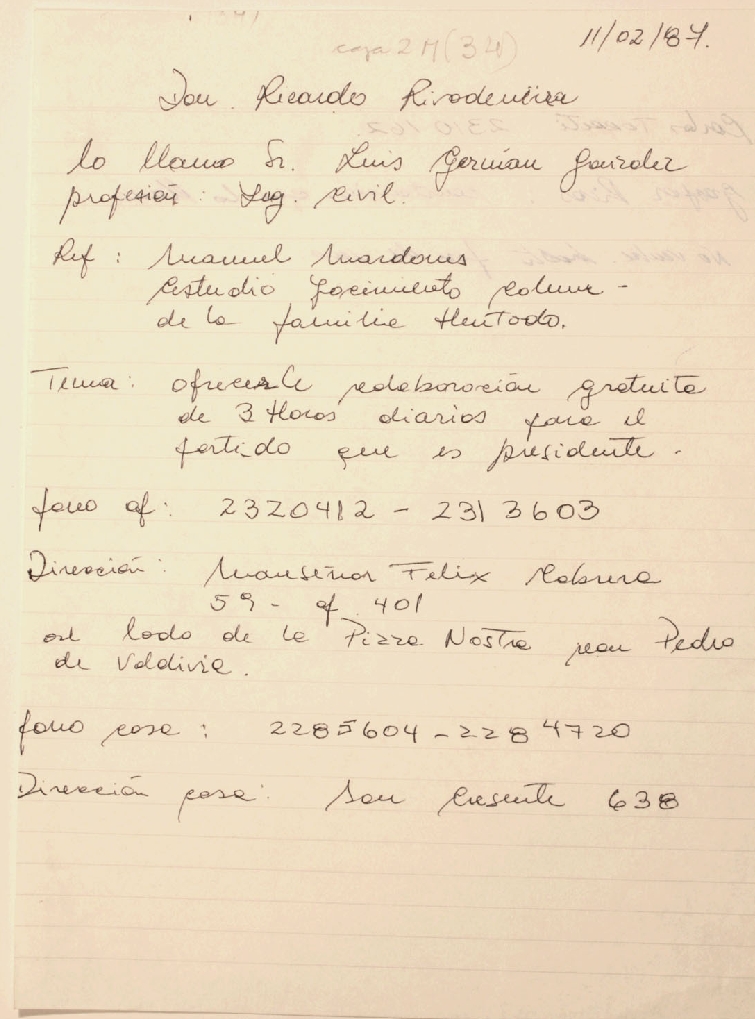 caja 2 M(34)
11/02/87.
Don Ricardo Rivadeneira
lo llamo Sr. Luis Germán
profesión: Ing. Civil.
Ref: Manuel Mardones
Estudio Yacimiento
de la familia Hurtado.
Tema: ofrecerle colaboración gratuita
de 3 Horas diarias para el
partido que es presidente.
fono of: 2320412 - 2313603
Dirección: Monseñor Felix Cabrera
59 - of 401
al lado de la Pizza Nostra con Pedro
de Valdivia.
fono casa: 2285604 - 2284720
Dirección casa: San Cresente 638